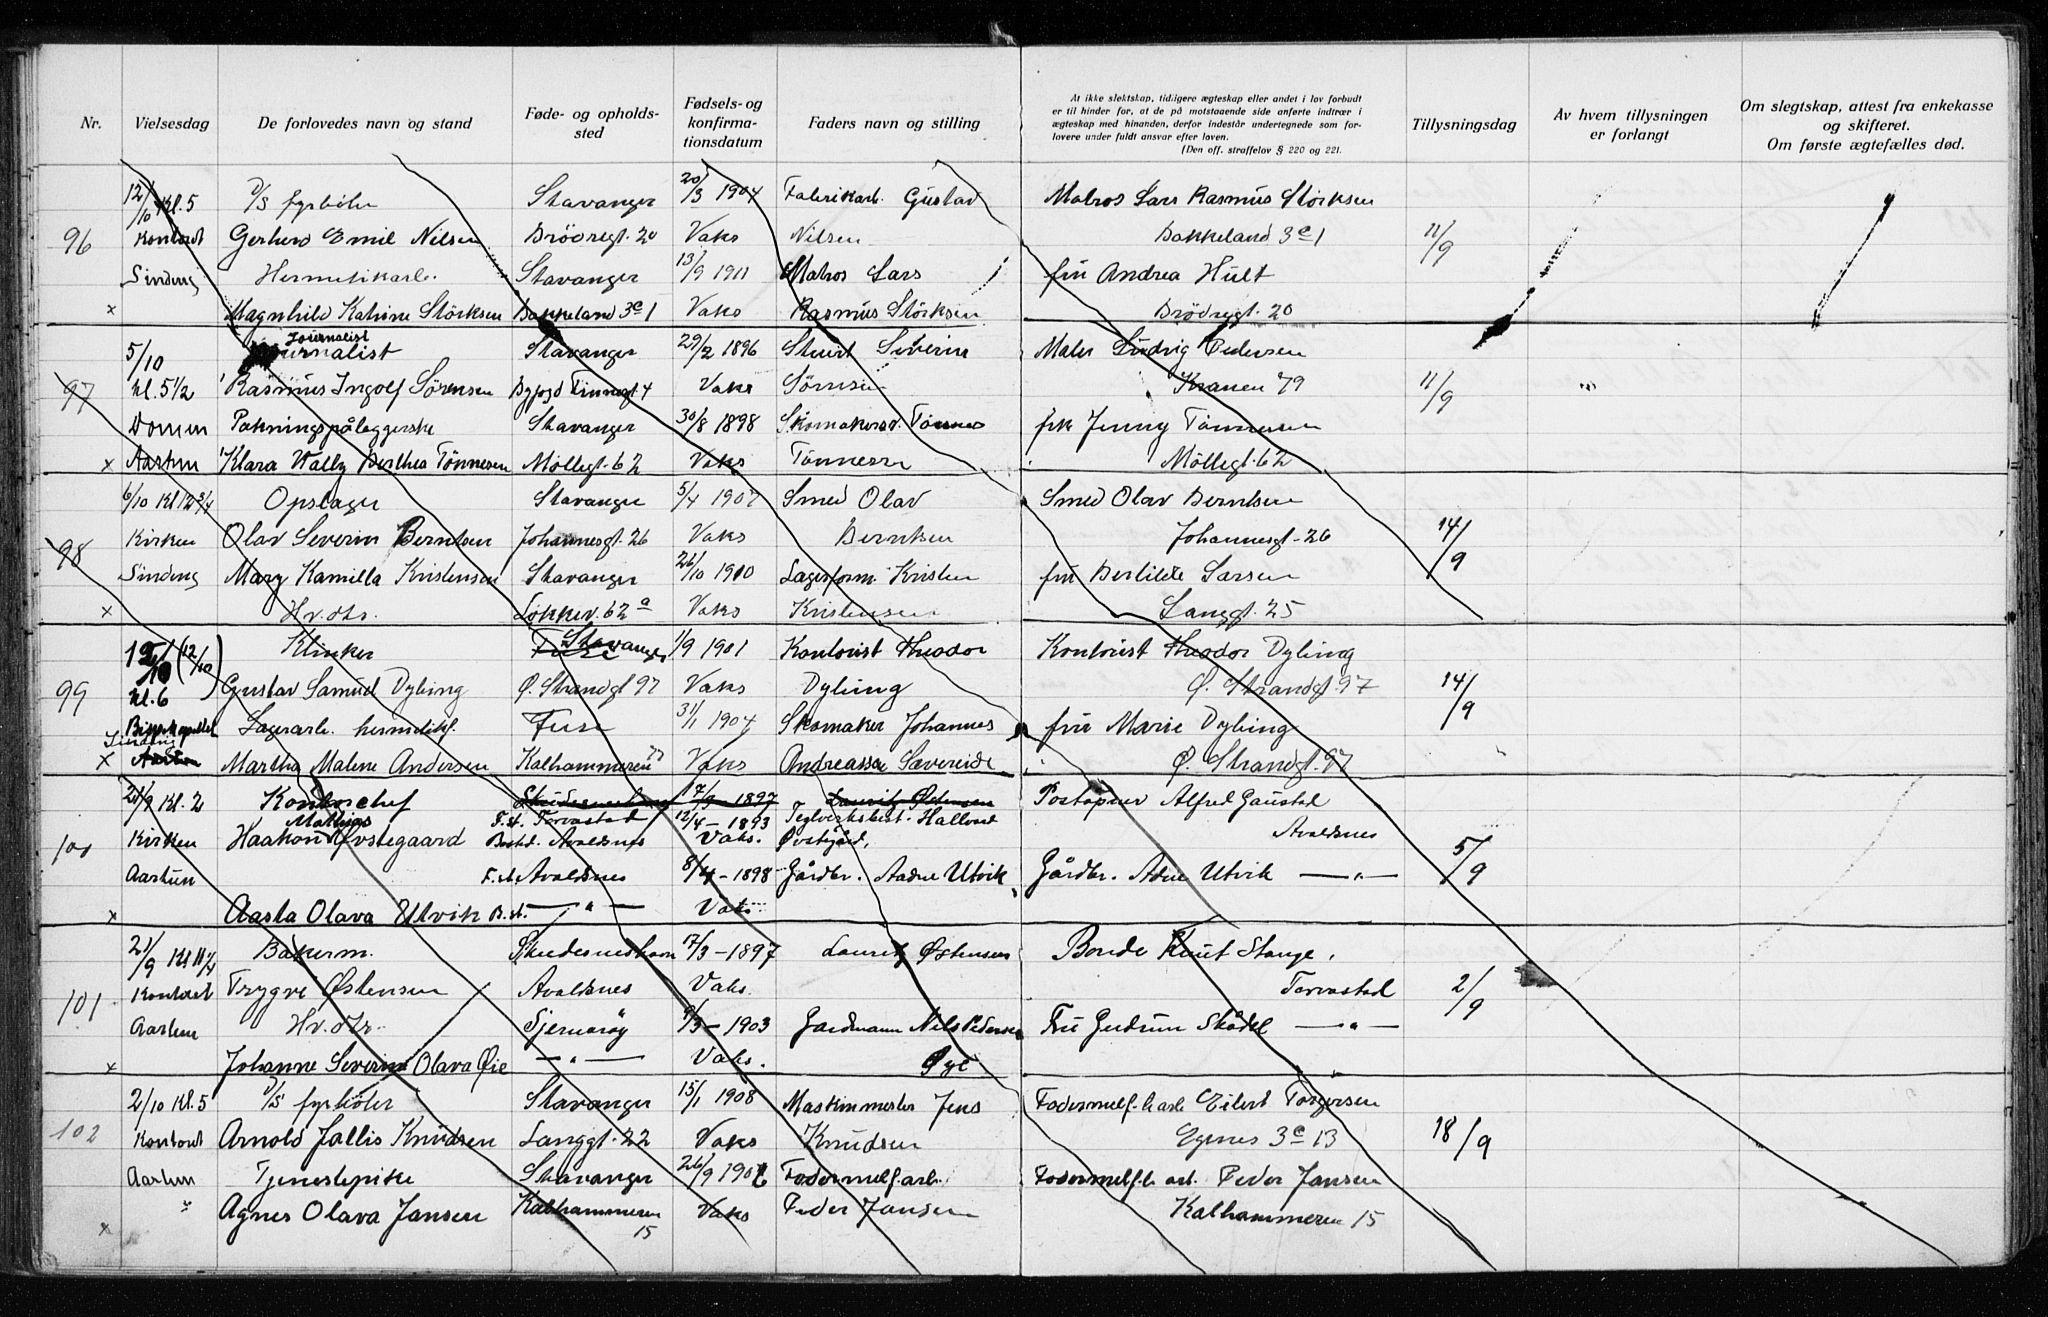 Nr. Vielsesdag De forlovedes navn og stand Føde- og opholds-sted Fødsels- og konfirma-tionsdatum Faders navn og stilling
At ikke slektskap, tidligere ægteskap eller andet i lov forbudt
er til hinder for, at de på motstaaende side anførte indtrær i
ægteskap med hinanden, derfor indestår undertegnede som for-
lovere under fuldt ansvar efter loven.
(Den off. straffelov § 220 og 221.
Tillysningsdag
Av hvem tillysningen er forlangt
Om slegtskap, attest fra enkekasse
og skifteret.
Om første ægtefælles død.
12/10 Kl. 5 D/S fyrbøter Stavanger 20/3 1904 Fabrikarb. Gustav Matros Lars Rasmus Störksen
96 Kontoret Gerhard Emil Nilsen Brödregt. 20 Vaks Nilsen Bakkeland 3c 1 11/9
Sinding Hermetikarb. Stavanger 13/9 1911 Matros Lars fru Andrea Hult
x Magnhild Katrine Störksen Bakkeland 3c 1 Vaks Rasmus Störksen Brödregt. 20
Journalist
5/10 Journalist Stavanger 29/2 1896 Stuert Severin Maler Ludvig Pedersen
97 Kl. 5 1/2 Rasmus Ingolf Sörensen Vaks Sörnsen Kranen 79 11/9 "
Domen Pakningspåleggerske Stavanger 30/8 1898 frk Jenny Tönnesen
x Aarhun Klara Wally Berthea Tönnesen Möllegt. 62 Vaks Tönnesen Möllegt. 62
6/10 Kl 12 3/4 Opslager Stavanger 5/4 1907 Smed Olav Smed Olav Berntsen
98 Kirken Olav Severin Berntsen Johannesgt. 26 Vaks Berntsen Johannesgt. 26 14/9
Sinding Mary Kamilla Kristensen Stavanger 26/10 1910 Lagerform. Kristen fru Bertilde Larsen
x Hv. dtr. Løkkev. 62 a Vaks Kristensen Langgt. 25
(12/10) Klinker Stavanger 1/9 1901 Kontorist Theodor Kontorist Theodor Dybing
99 Kl. 6 Gustav Samuel Dybing Ø. Strandgt 97 Vaks Dybing Ø. Strandgt. 97 14/9
Bispekapellet Lagerarb. hermetikf. Fuse 31/1 1904 Skomaker Johannes fru Marie Dybing
Sinding
x Aarhun Martha Malene Andersen Kalhammeren Vaks Andreassen Sævereide Ø. Strandgt. 97
21/9 Kl. 2 Kontorchef Skudesneshavn 17/3 - 1897 Laurits Østensen Postopner Alfred Gaustad
Mathias F. st. Torvastad 12/4 - 1893 Teglverksbest. Hallvard
100 Kirken Haakon Øvstegaard Bosted. Avaldsnes Vaks. Øvstegård, Avaldsnes 5/9
Aarhun F. st. Avaldsnes 8/4 - 1898 Gårdbr. Aadne Utvik Gårdbr. Adne Utvik — " —
x Aasta Olava Utvik B. st. — " — Vaks
21/9 Kl 11 3/4 Bakerm. Skudesneshavn 17/3 - 1897 Laurits Østensen Bonde Knut Stange,
101 Kontoret Trygve Østensen Avaldsnes Vaks. Torvastad 2/9
Aarhun Hv. dtr. Sjernarøy 9/3 - 1903 Gardmann Nils Pedersen Fru Gudrun Skådel — " —
x Johanne Severine Olava Øie — " — Vaks. Øye
2/10 Kl. 5 D/S fyrbøter Stavanger 15/1 1908 Maskinmester Jens Fodermelf. arb Eilert Torgersen
102 Kontoret Arnold Jallis Knudsen Langgt. 22 Vaks Knudsen Egenes 3c 13 18/9
Aarhun Tjenestepike Stavanger Fodermelf. arb. Fodermelf. arb. Peder Jansen
x " Agnes Olava Jansen Kalhammeren 15 Vaks Peder Jansen Kalhammeren 15